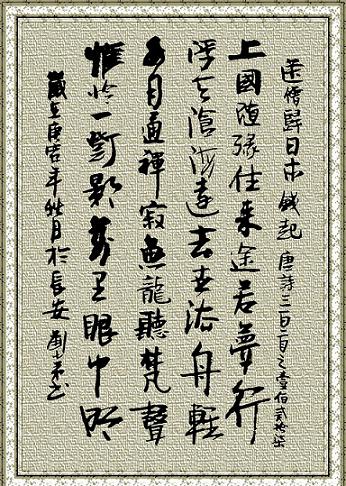 送僧歸日本 錢起 唐詩三百首之壹佰貳拾柒
上國随緣住来途若夢行
浮天滄海遠去世法舟輕
水月通禪寂魚龍聽梵聲
惟憐一燈影萬里眼中明
歲在庚寅年秋月於長安 劉